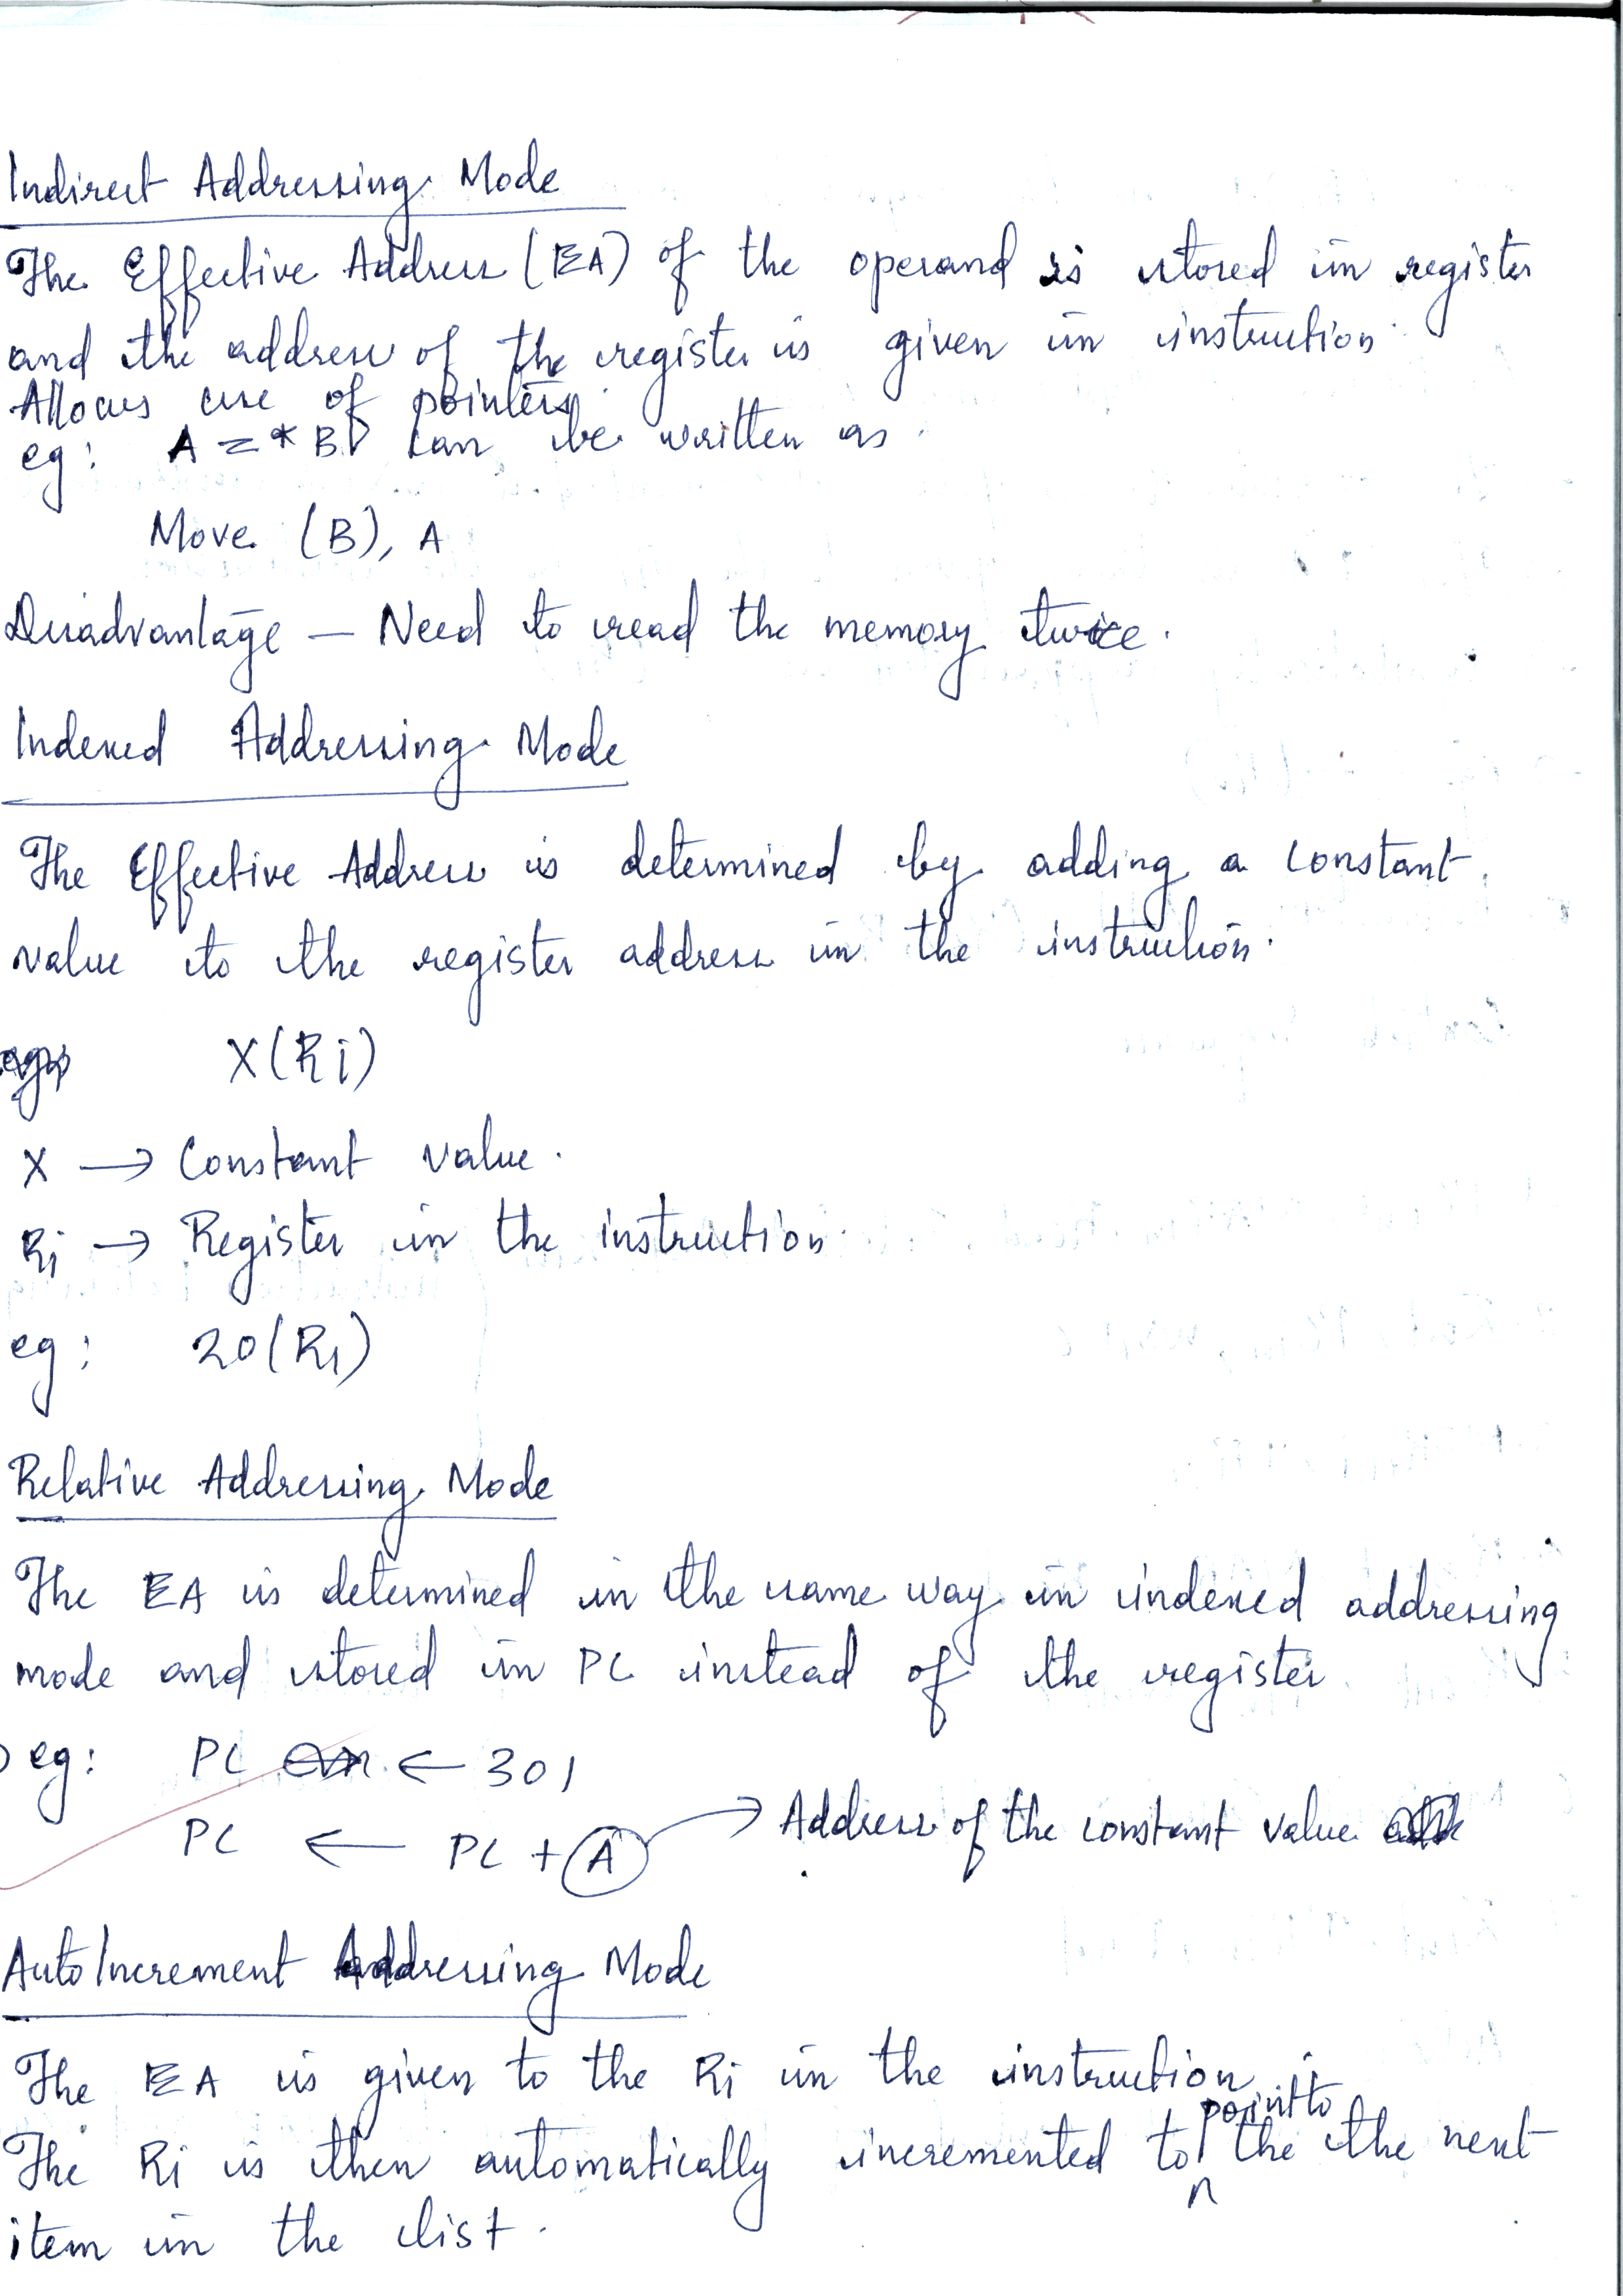 Indirect Addressing Mode
The Effective Address (EA) of the operand is stored in register
and the address of the register is given in instruction.
Allows use of pointers.
eg: A = * B can be written as
Move (B), A
Disadvantage — Need to read the memory twice.
Indexed Addressing Mode
The Effective Address is determined by adding a constant
value to the register address in the instruction.
X(Ri)
X → Constant value.
Ri → Register in the instruction.
eg: 20(R1)
Relative Addressing Mode
The EA is determined in the same way in indexed addressing
mode and stored in PC instead of the register.
eg: PC ← 301
PC ← PC + A → Address of the constant value
AutoIncrement Addressing Mode
The EA is given to the Ri in the instruction.
The Ri is then automatically incremented to point to the the next
item in the list.